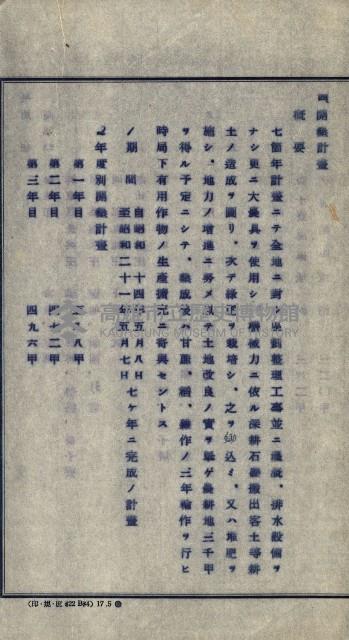 開墾計畫
概要
七個年計畫ニテ全地ニ對シ區劃整理工事並ニ灌漑、排水設備ヲ
ナシ更ニ大農具ヲ使用シ機械力ニ依ル深耕石礫搬出客土等耕
土ノ造成ヲ圖リ、次デ綠肥ヲ栽培シ、之ヲ鋤込ミ、又ハ堆肥ヲ
施シ、地力ノ增進ニ努メ土地改良ノ實ヲ擧ゲ墾耕地三千甲
ヲ得ル予定ニシテ、墾成後ハ甘蔗、稻、雜作ノ三年輪作ヲ行ヒ
時局下有用作物ノ生產擴充ニ寄與セントス
ノ期間 自昭和十四年五月八日
至昭和二十一年五月七日 七ケ年ニ完成ノ計畫
年度別開墾計畫
第一年目 八甲
第二年目 二甲
第三年目 四九六甲
高雄市立歷史博物館
KAOHSIUNG MUSEUM OF HISTORY
17.5